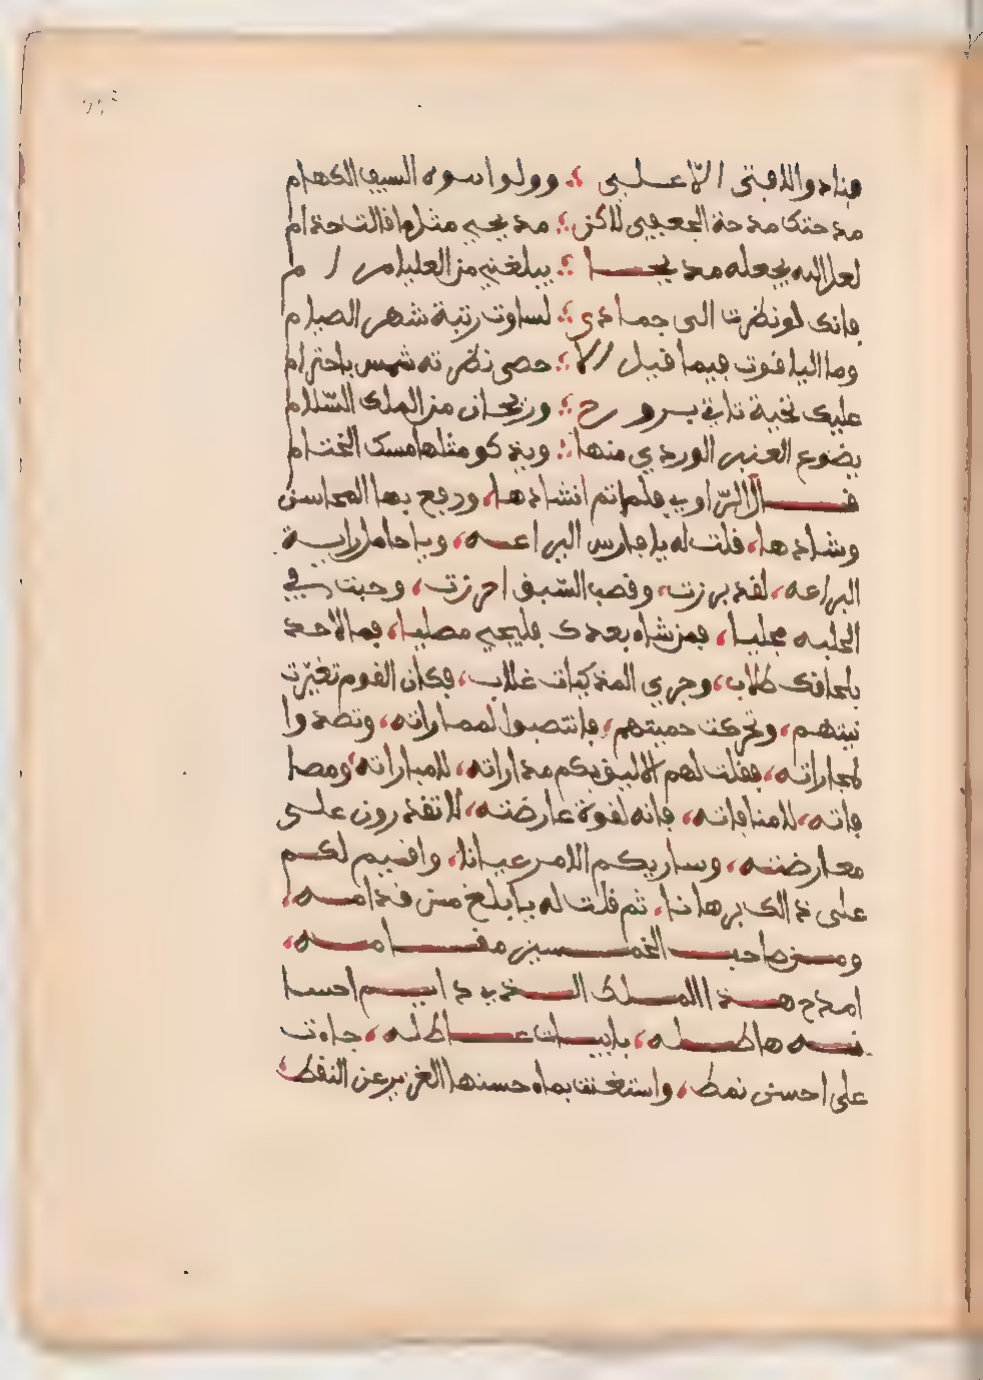 فنادوا لا فتى الا علي ؛ وولوا سوه السيف الكهام
مدحتك مدحة الجعفي لاكن ؛ مديحي مثل ما قالت حذام
لعل الله يجعله مديحا ؛ يبلغني من العليا مرام
فانك لو نظرت الى جمادي ؛ لساوت رتبة شهر الصيام
وما الياقوت فيما قيل الا ؛ حصى نظرته شمس باحترام
عليك تحية تاتي بروح ؛ وريحان من الملك السلام
يضوع العنبر الوردي منها ؛ ويذكو مثلها مسك الختام
قال الراوي فلما تم انشادها، ورفع بها المحاسن
وشادها، قلت له يا فارس البراعه، ويا حامل راية
البراعه، لقد برزت، وقصب السبق احرزت، وجيت في
الحلبه مجليا، فمن شاء بعدك فليجي مصليا، فما لاحد
بلحاقك طلاب، وجري المذكيات غلاب، فكان القوم تغيرت
نيتهم، وتحركت حميتهم، فانتصبوا لمصاراته، وتصدوا
لمجاراته، فقلت لهم الاليق بكم مداراته، لا مباراته، ومصا
فاته، لا منافاته، فانه لقوة عارضته، لا تقدرون على
معارضته، وساريكم الامر عيانا، واقيم لكم
على ذالك برهانا، ثم قلت له يا ابلغ من قدامه،
ومن صاحب الخمسين مقامه،
امدح هذا الملك الذي ديم احسا
نه هاطله، بابيات عاطله، جاءت
على احسن نمط، واستغنت بماء حسنها الغزير عن النقط،